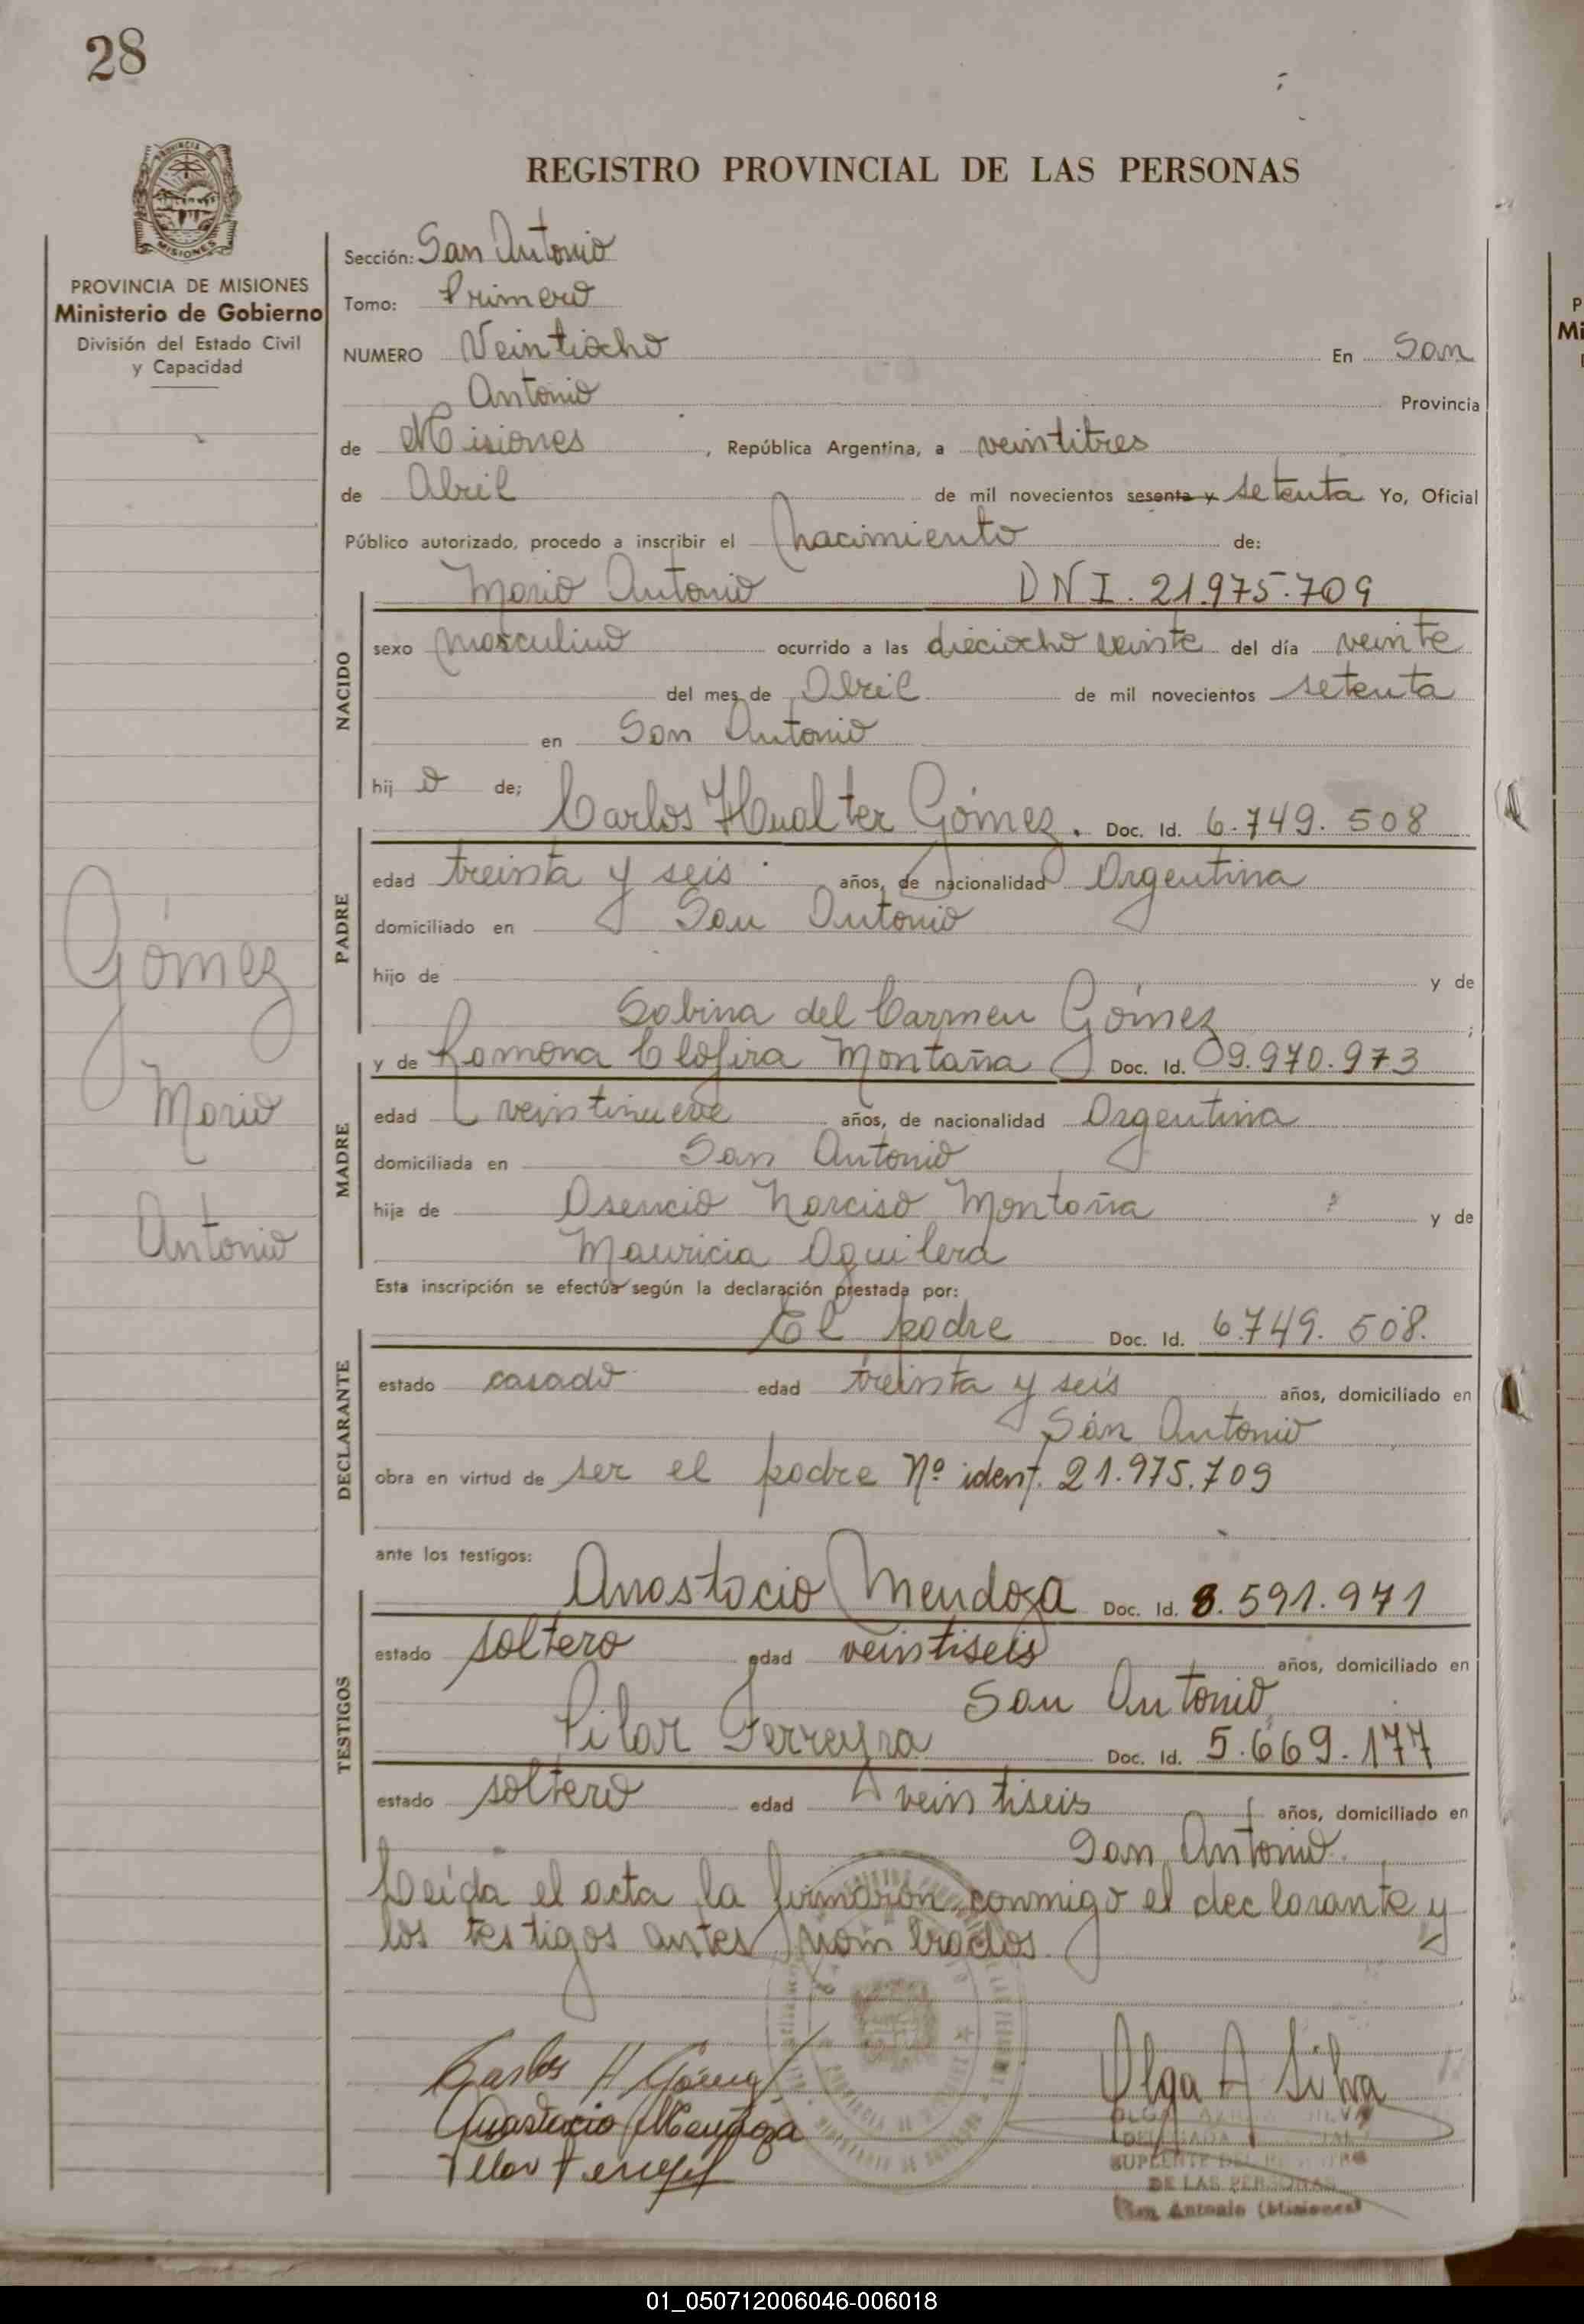 28
PROVINCIA DE MISIONES
Ministerio de Gobierno
División del Estado Civil
y Capacidad
Gómez
Mario
Antonio
REGISTRO PROVINCIAL DE LAS PERSONAS
Sección: San Antonio
Tomo: Primero
NUMERO Veintiocho En San
Antonio Provincia
de Misiones, República Argentina, a veintitres
de Abril de mil novecientos sesenta y setenta Yo, Oficial
Público autorizado, procedo a inscribir el nacimiento de:
Mario Antonio DNI. 21.975.709
NACIDO
sexo masculino ocurrido a las dieciocho veinte del día veinte
del mes de Abril de mil novecientos setenta
en San Antonio
hijo de; Carlos Hualter Gómez. Doc. Id. 6.749.508
PADRE
edad treinta y seis años, de nacionalidad Argentina
domiciliado en San Antonio
hijo de y de
Sabina del Carmen Gómez;
MADRE
y de Ramona Clofira Montaña Doc. Id. 09.970.973
edad veintinueve años, de nacionalidad Argentina
domiciliada en San Antonio
hija de Asencio Narciso Montaña y de
Mauricia Aguilera
Esta inscripción se efectúa según la declaración prestada por:
DECLARANTE
El padre Doc. Id. 6.749.508.
estado casado edad treinta y seis años, domiciliado en
San Antonio
obra en virtud de ser el padre Nº ident. 21.975.709
ante los testigos:
TESTIGOS
Anastacio Mendoza Doc. Id. 8.591.971
estado soltero edad veintiseis años, domiciliado en
San Antonio,
Pilar Ferreyra Doc. Id. 5.669.177
estado soltero edad veintiseis años, domiciliado en
San Antonio.
Leída el acta la firmaron conmigo el declarante y
los testigos antes nombrados
Carlos H Gómez
Anastacio Mendoza
Pilar Ferreyra
Olga A Silva
SUPLENTE DEL
DE LAS PERSONAS
San Antonio (Misiones)
01_050712006046-006018